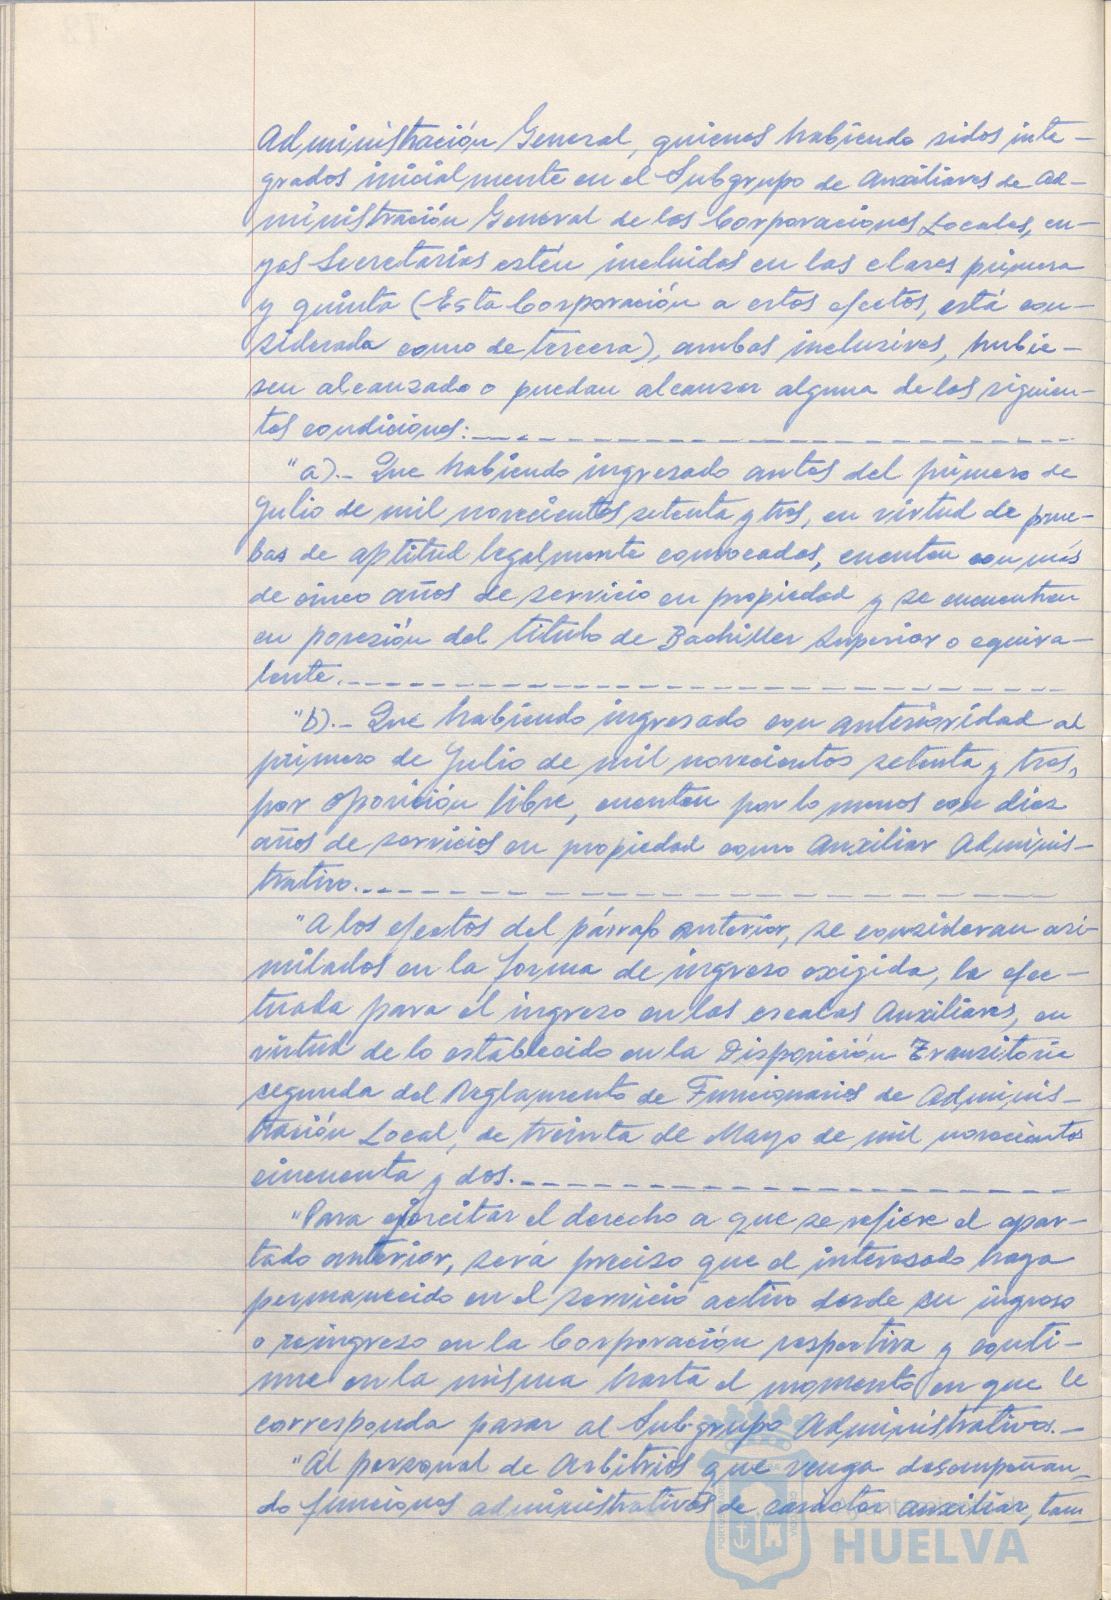 Administración General, quienes habiendo sidos inte-
grados inicialmente en el Subgrupo de Auxiliares de Ad-
ministración General de las Corporaciones Locales, cu-
yas Secretarías estén incluidas en las clases primera
y quinta (Esta Corporación a estos efectos, está con-
siderada como de tercera), ambas inclusives, hubie-
sen alcanzado o puedan alcanzar alguna de las siguien-
tes condiciones:
"a).- Que habiendo ingresado antes del primero de
Julio de mil novecientos setenta y tres, en virtud de prue-
bas de aptitud legalmente convocadas, cuenten con más
de cinco años de servicio en propiedad y se encuentren
en posesión del título de Bachiller Superior o equiva-
lente.
"b).- Que habiendo ingresado con anterioridad al
primero de Julio de mil novecientos setenta y tres,
por oposición libre, cuenten por lo menos con diez
años de servicios en propiedad como Auxiliar Adminis-
trativo.
"A los efectos del párrafo anterior, se consideran asi-
milados en la forma de ingreso exigida, la efec-
tuada para el ingreso en las escalas Auxiliares, en
virtud de lo establecido en la Disposición Transitoria
segunda del Reglamento de Funcionarios de Adminis-
tración Local, de treinta de Mayo de mil novecientos
cincuenta y dos.
"Para ejercitar el derecho a que se refiere el apar-
tado anterior, será preciso que el interesado haya
permanecido en el servicio activo desde su ingreso
o reingreso en la Corporación respectiva y conti-
nue en la misma hasta el momento en que le
corresponda pasar al Subgrupo Administrativos.-
"Al personal de Arbitrios que venga desempeñan-
do funciones administrativas de carácter auxiliar, tam-
HUELVA